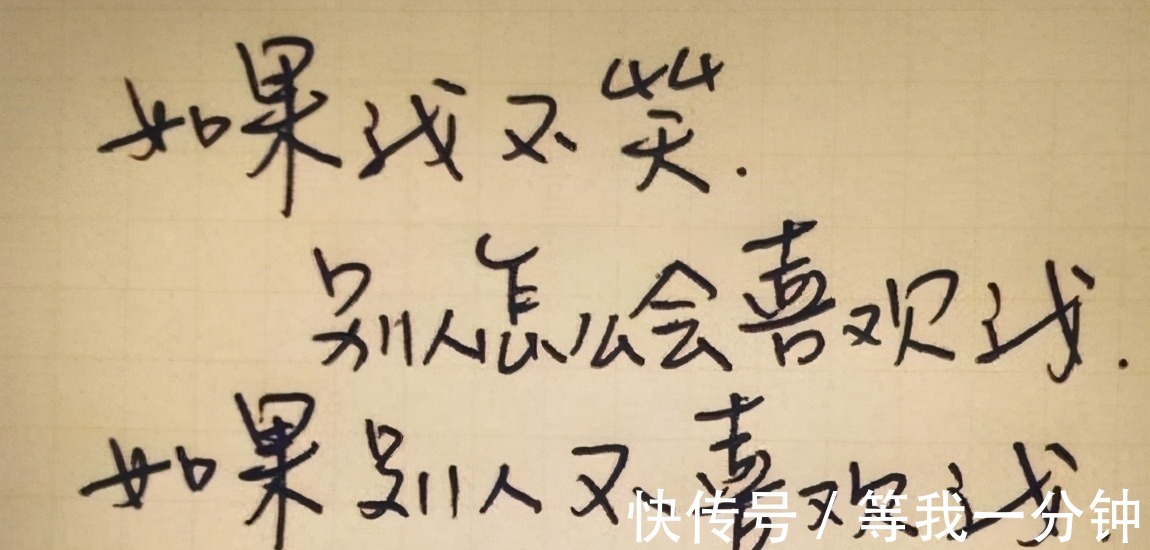 如果我不笑.
别人怎么会喜欢我.
如果别人不喜欢我
快传号 / 等我一分钟